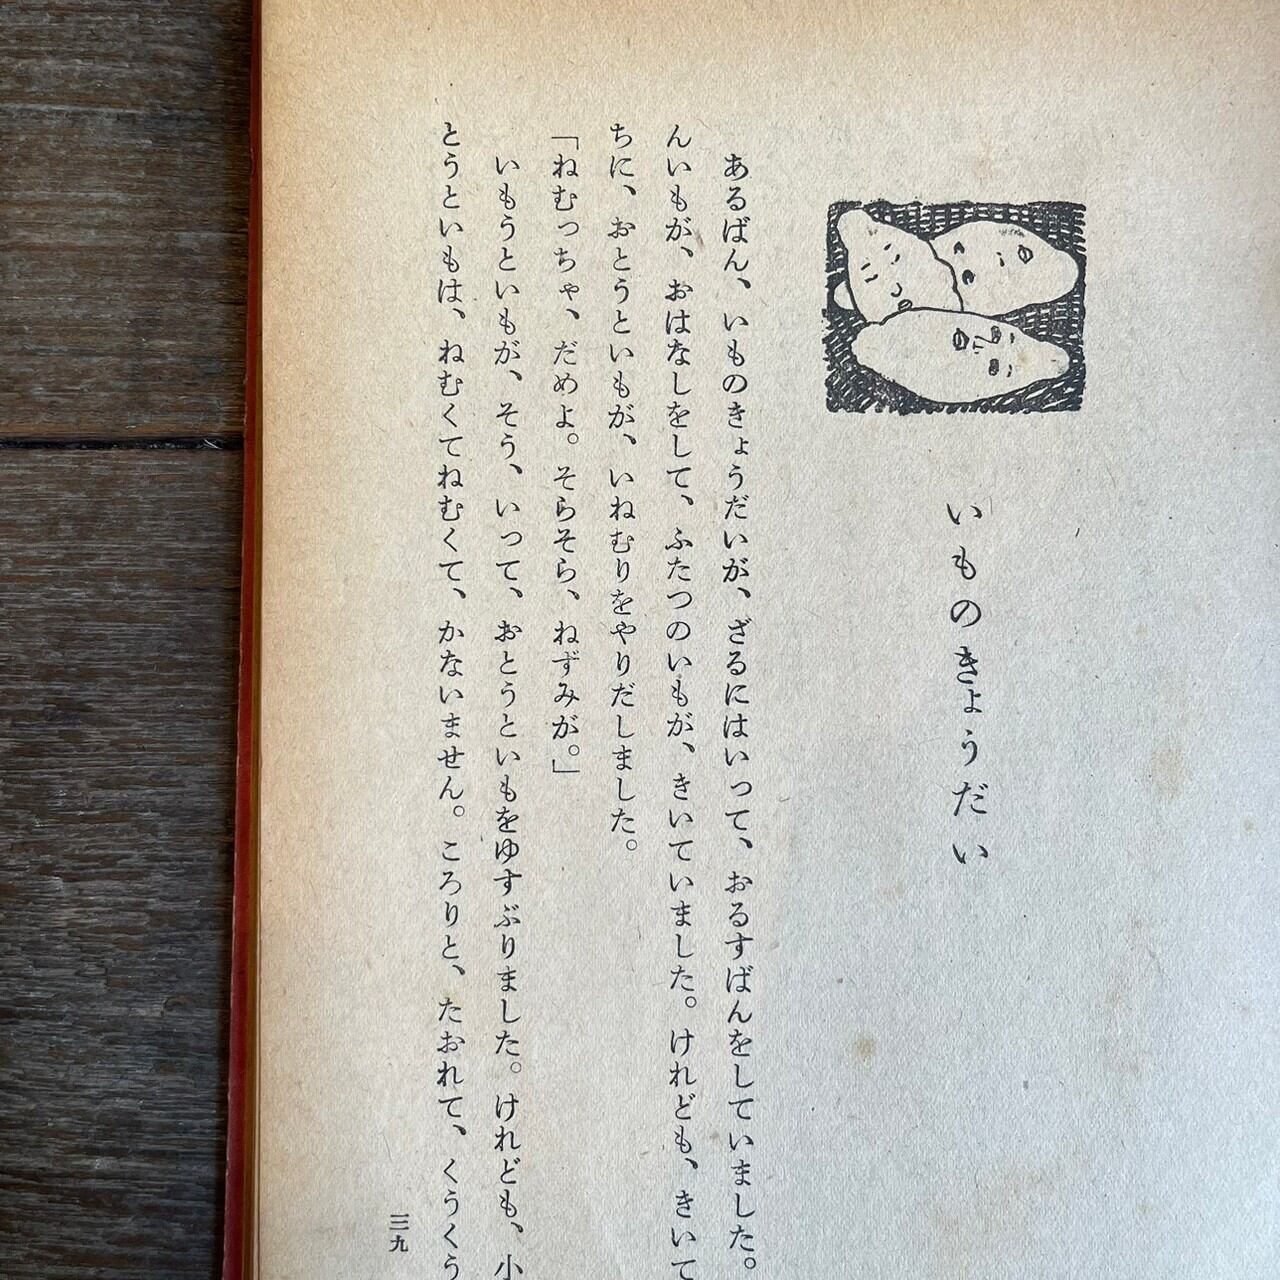 いものきょうだい
あるばん、いものきょうだいが、ざるにはいって、おるすばんをしていました。
んいもが、おはなしをして、ふたつのいもが、きいていました。けれども、きいて
ちに、おとうといもが、いねむりをやりだしました。
「ねむっちゃ、だめよ。そらそら、ねずみが。」
いもうといもが、そう、いって、おとうといもをゆすぶりました。けれども、小
とうといもは、ねむくてねむくて、かないません。ころりと、たおれて、くうくう
三九